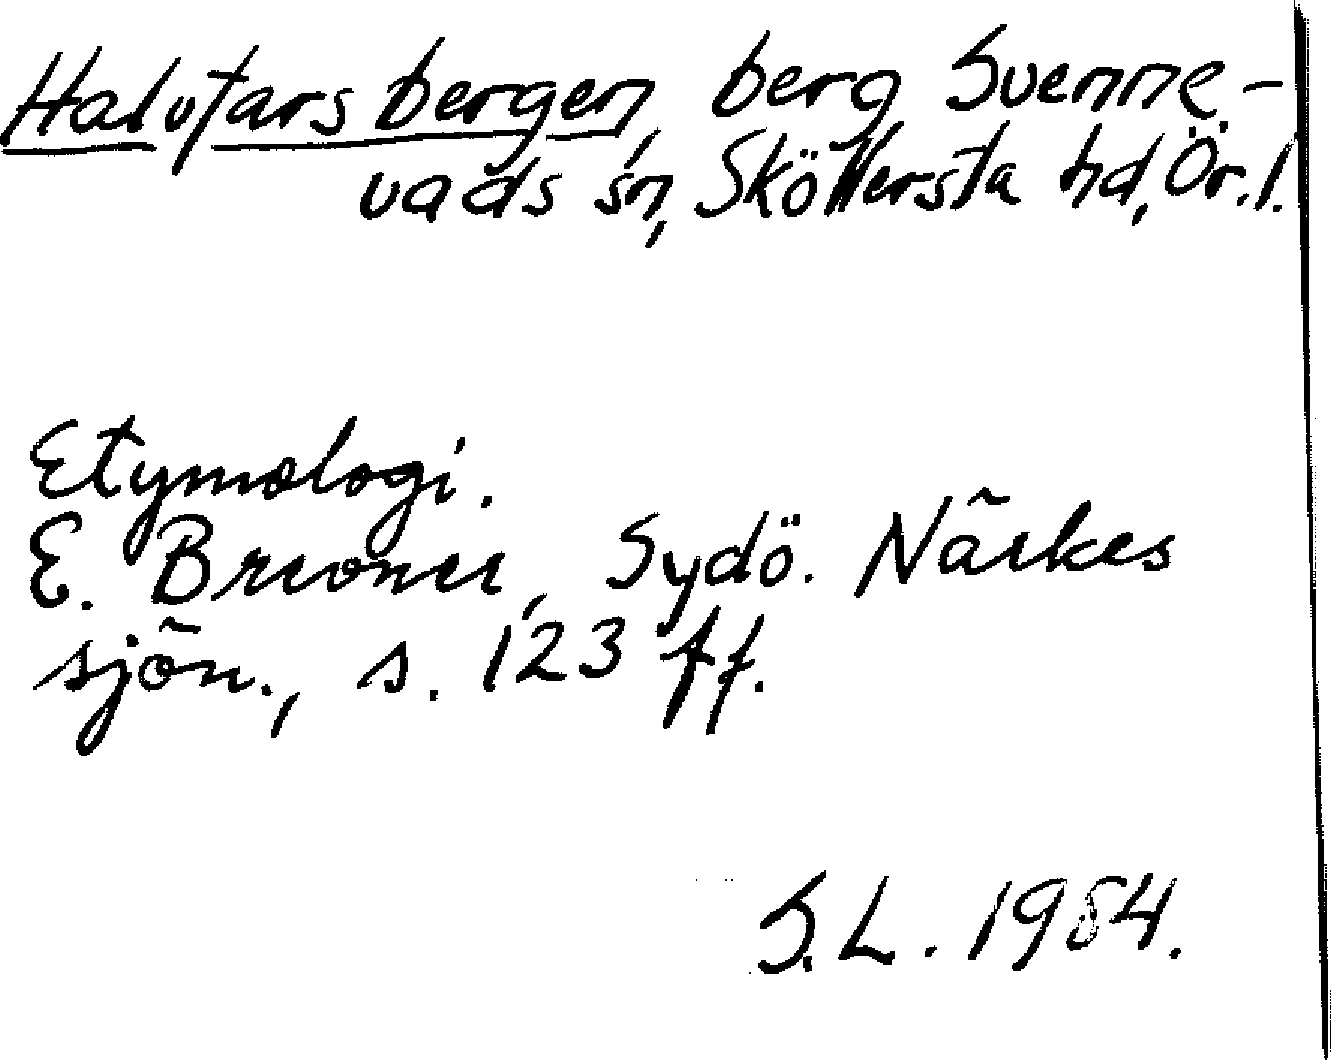 Halvfarsbergen, berg Svenne-
vads sn, Sköllersta hd, Ör.l.
Etymologi.
E. Brevner, Sydö. Närkes
sjön., s. 123 ff.
S.L. 1984.